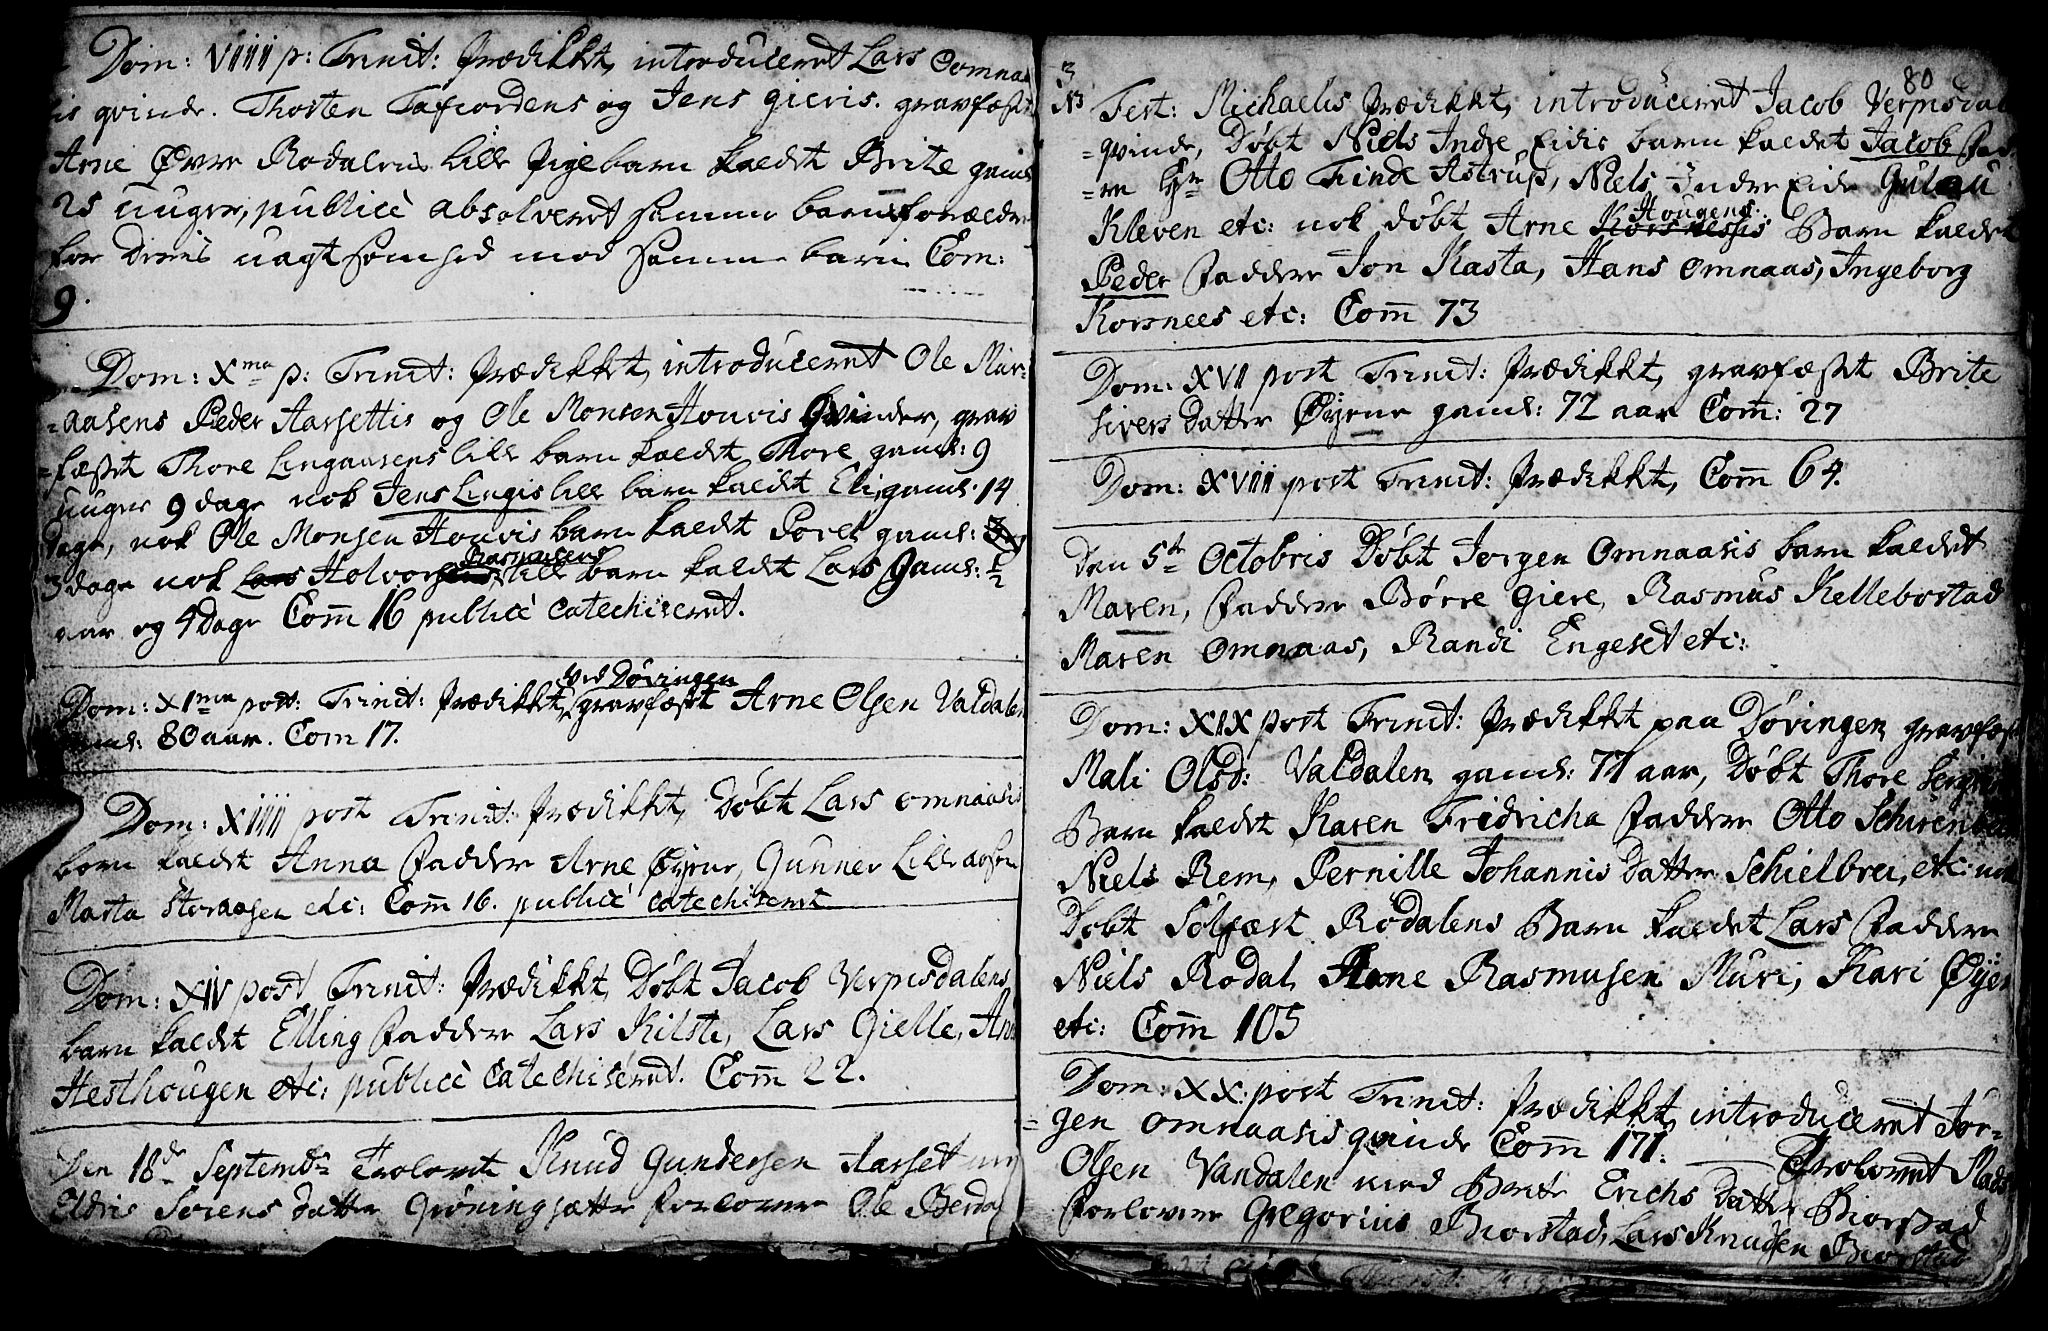 Dom: VIIII p: Trinit: Prædikket, introduceret Lars Omnaa
is qvinde. Thosten Tafiordens og Jens gieris. gravfæst
Arne Øvre Rødalens lille Pigebarn kaldet Brite gaml
25 uuger, publicè absolveret samme barns forældre
for deris uagtsomhed med samme barn Com:
9.
Dom: Xma p: Trinit: Prædikket, introduceret Ole Mur=
=aasens Peder Aarsettis og Ole Monsen Houvis Qvinder, grav
=fæstet Thore Lingaasens lille barn kaldet Thore gaml: 9
uuger 9 dage nok Jens Lingis lille barn kaldet Eli, gaml: 14
Dage, nok Ole Monsen Houvis barn kaldet Porel gaml:
Rasmusens
3 dage nok Lars Holvor lille barn kaldt Lars gaml: ½
aar og 4 Dage Com̅ 16 publicè catechiseret.
ved Døvingen
Dom: XIma post: Trinit: Prædikket, gravfæstet Arne Olsen Valdalen
gaml: 80 aar. Com 17.
Dom: XIIII post Trinit: Prædikket, Døbt Lars Omnaasis
barn kaldet Anna Faddere Arne Øyene, Gunner Lilleaasen
Marta Storaasen etc: Com̅ 16. publicè catechiseret
Dom: XIV post Trinit: Prædikket, Døbt Jacob Verpisdalens
barn kaldet Elling Faddere Lars Kilsti, Lars Gielle, Ane
Hesthougen etc: publicè catechiseret. Com̅ 22.
Den 18de Septembr Trolovet Knud Gundersen Aarset
Eldris Sorens Datter Grøningsætter forlovere Ole Berdal
80
3
NB Fest: Michaelis Prædikket, introduceret Jacob Verpisdal
=qvinde, Døbt Niels Indre Eidis barn kaldet Jacob Fad=
=re Hr Otto Finde Astrup, Niels Indre Eide Gulau
Hougens
Kleven etc: nok døbt Arne Korsnessis Barn kaldet
Peder Faddere Jon Kasta, Hans Omnaas, Ingeborg
Korsnees etc: Com̅ 73
Dom: XVII post Trinit: Prædikket, gravfæstet Brite
Sivers Datter Øyene gaml: 72 aar Com̅: 27
Dom: XVIII post Trinit: Prædikket, Com̅ 64.
Den 5te Octobris Døbt Jorgen Omnaasis barn kaldet
Maren, Faddere Børre Giere, Rasmus Kellebostad
Maren Omnaas, Randi Engeset etc:
Dom: XIX post Trinit: Prædikket paa Døvingen gravfæst
Mali Olsd: Valdalen gaml: 77 aar, Døbt Thore
Barn kaldet Karen Fridricha Faddere Otto
Niels Rem, Pernille Johannis Datter Schielbrei, etc: nok
Døbt Sølfæst Rødalens Barn kaldet Lars Faddere
Niels Rodal, Arne Rasmusen Muri, Kari Øyen
etc: Com̅ 105
Dom: XX: post Trinit: Prædikket, introduceret Jør=
=gen Omnaasis qvinde Com̅ 171. Trolovet Mads
Olsen Vandalen med Berte Erichs Datter Biorstad
Forlovere Gregorius Biorstad, Lars Knudsen Biorstad